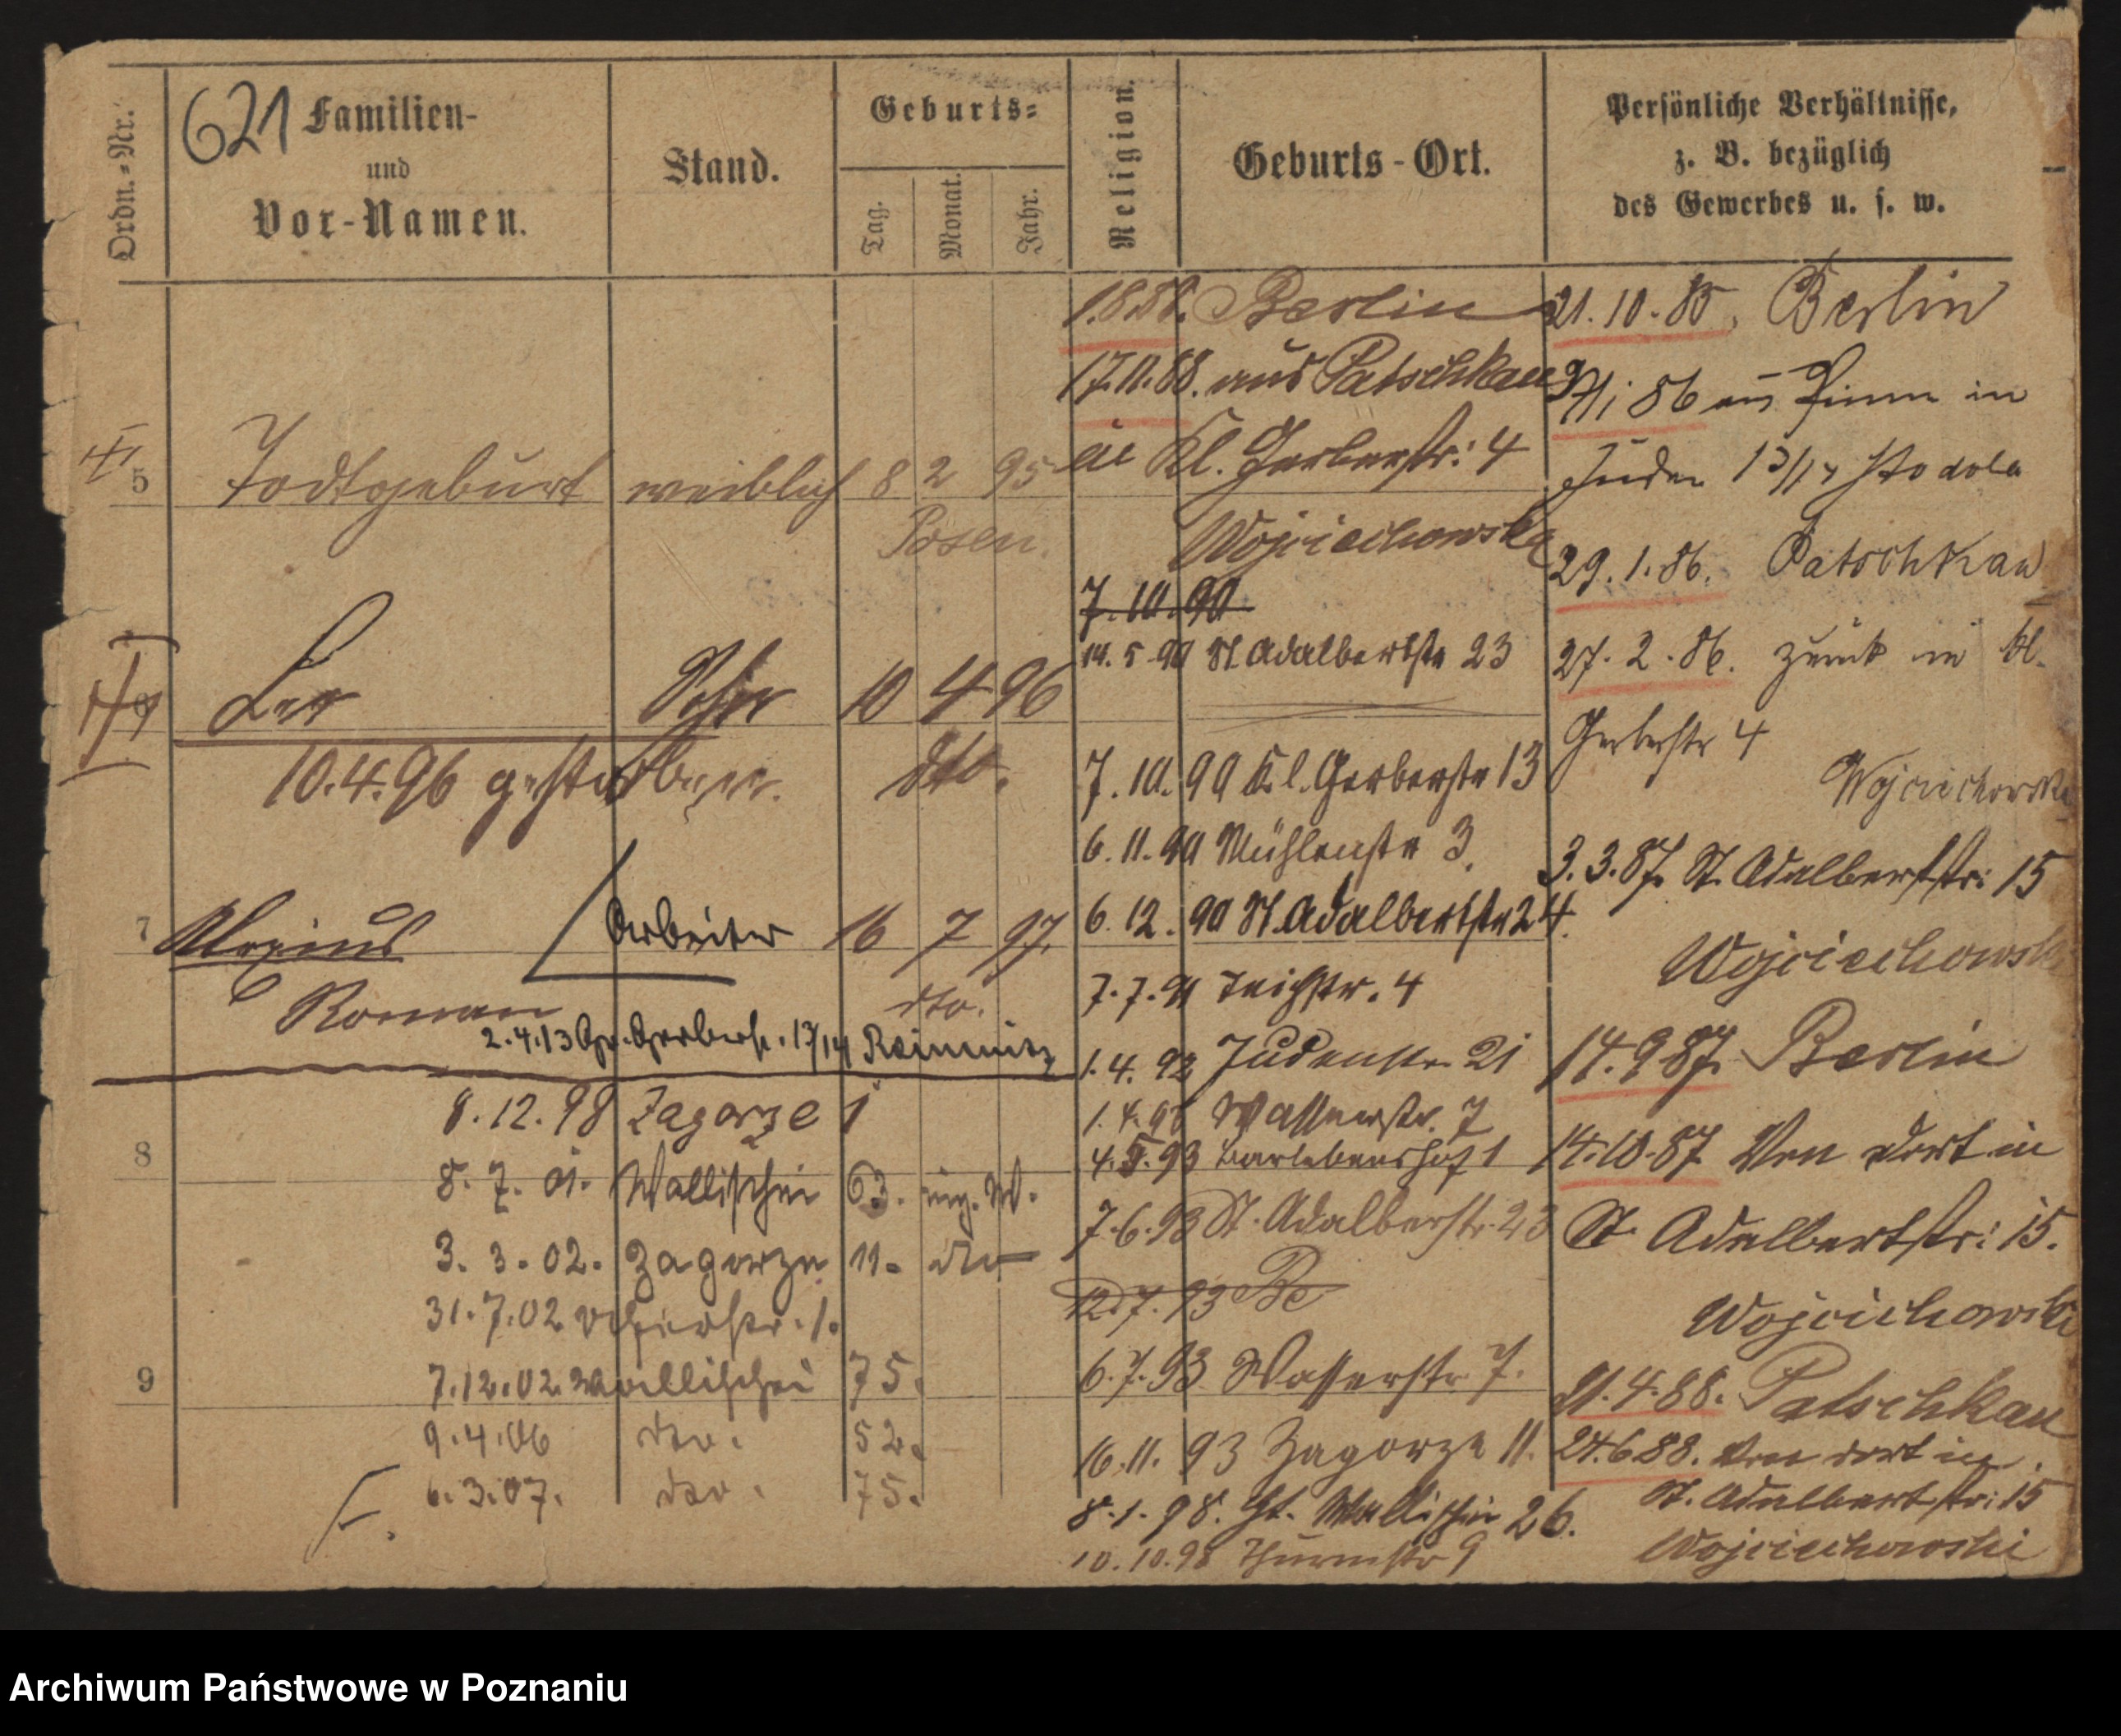 621
Ordn.-Nr.
Familien-
und
Vor-Namen.
Stand.
Geburts-
Tag.
Monat.
Jahr.
Religion.
Geburts-Ort.
Persönliche Verhältnisse,
z. B. bezüglich
des Gewerbes u. s. w.
5 Todtgeburt weiblich 8 2 95
Posen.
10 4 96
10.4.96 gestorben. dto.
7 Alexius Arbeiter 16 7 97.
Roman dto.
2.4.13 Gr. Gerberstr. 13/14
8
8.12.98 Zagorze 1
8.7.01. Wallischei 63.
3.3.02. Zagorze 11. dto
31.7.02
9
7.12.02. Wallischei 75.
9.4.06 dto. 52.
6.3.07. dto. 75.
F.
Berlin
17.11.88. aus Patschkau
in Kl. Gerberstr: 4
Wojciechowska
7.10.90
14.5.90 St Adalbertstr 23
7.10.90 Kl. Gerberstr 13
6.11.90 Mühlenstr 3.
6.12.90 St. Adalbertstr 24.
7.7.91 Teichstr. 4
1.4.92 Judenstr 21
Wasserstr. 7
4.5.93 Barlebenshof 1
7.6.93 St. Adalbertstr. 23
12.7.93 Be
6.7.93 Wasserstr 7.
16.11.93 Zagorze 11.
8.1.98. Wallischei 26.
10.10.98 Thurmstr 9
21.10.85. Berlin
86 aus Pinne in
Juden 13/14 Stodola
29.1.86. Patschkau
27.2.86. zurück in Kl.
Gerberstr 4
Wojciechowski
3.3.87. St. Adalbertstr: 15
Wojciechowski
14.9.87. Berlin
14.10.87. Von dort in
St. Adalbertstr: 15.
Wojciechowski
21.4.88. Patschkau
24.6.88. Von dort in
St. Adalbertstr: 15
Wojciechowski
Archiwum Państwowe w Poznaniu